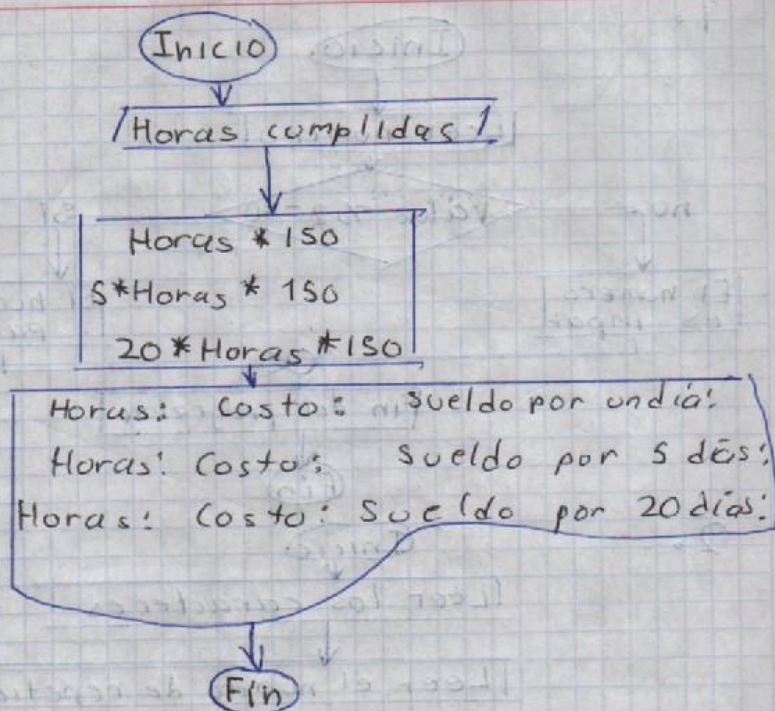 Inicio
Horas cumplidas
Horas * 150
5*Horas * 150
20*Horas*150
Horas: Costo: Sueldo por un día:
Horas: Costo: Sueldo por 5 días:
Horas: Costo: Sueldo por 20 días:
Fin